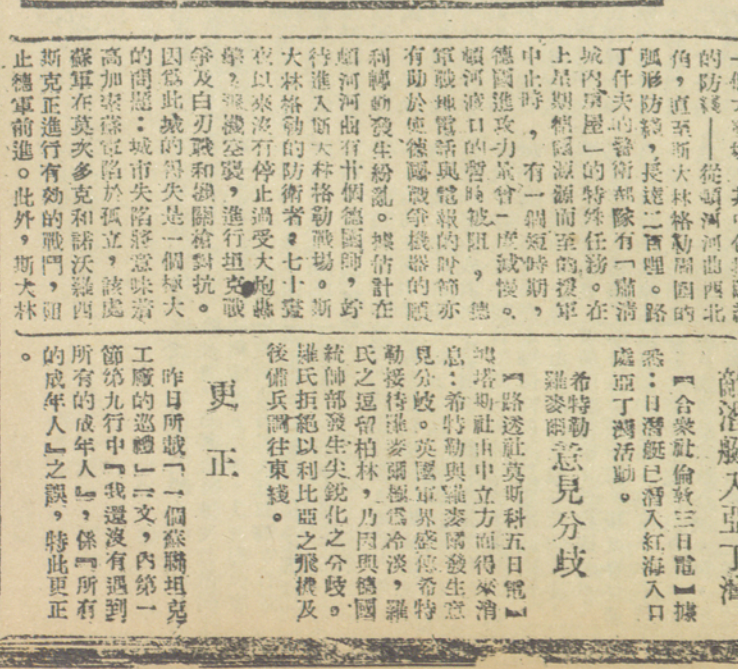 的防綫——從頓河河曲西北
角，直至斯大林格勒周圍的
弧形防綫，長達二百哩。路
丁什夫的警衛部隊有「肅清
城內房屋」的特殊任務。在
上星期德國源源而至的援軍
中止時，有一個短時期，
德國進攻力量曾一度減慢。
頓河渡口的暫時被阻，德
軍戰地電話與電報的時節亦
有助於使德國戰爭機器的順
利轉動發生紛亂。據估計在
頓河河曲有廿個德國師，竚
待進入斯大林格勒戰場。斯
大林格勒的防衛者，七十晝
夜以來沒有停止過受大炮轟
擊，飛機空襲，進行坦克戰
爭及白刃戰和機關槍對抗。
因爲此城的得失是一個極大
的問題：城市失陷將意味着
高加索蘇軍陷於孤立，該處
蘇軍在莫次多克和諾沃羅西
斯克正進行有効的戰鬥，阻
止德軍前進。此外，斯大林
敵潛艇入亞丁灣
【合衆社倫敦三日電】據
悉：日潛艇已潛入紅海入口
處亞丁灣活動。
希特勒
羅麥爾
意見分歧
【路透社莫斯科五日電】
據塔斯社由中立方面得來消
息：希特勒與羅麥爾發生意
見分歧。英國軍界盛傳希特
勒接待羅麥爾極爲冷淡，羅
氏之逗留柏林，乃因與德國
統帥部發生尖銳化之分歧。
羅氏拒絕以利比亞之飛機及
後備兵調往東綫。
更正
昨日所載「一個蘇聯坦克
工廠的巡禮」一文，內第一
節第九行中『我還沒有遇到
所有的成年人』，係『所有
的成年人』之誤，特此更正
。